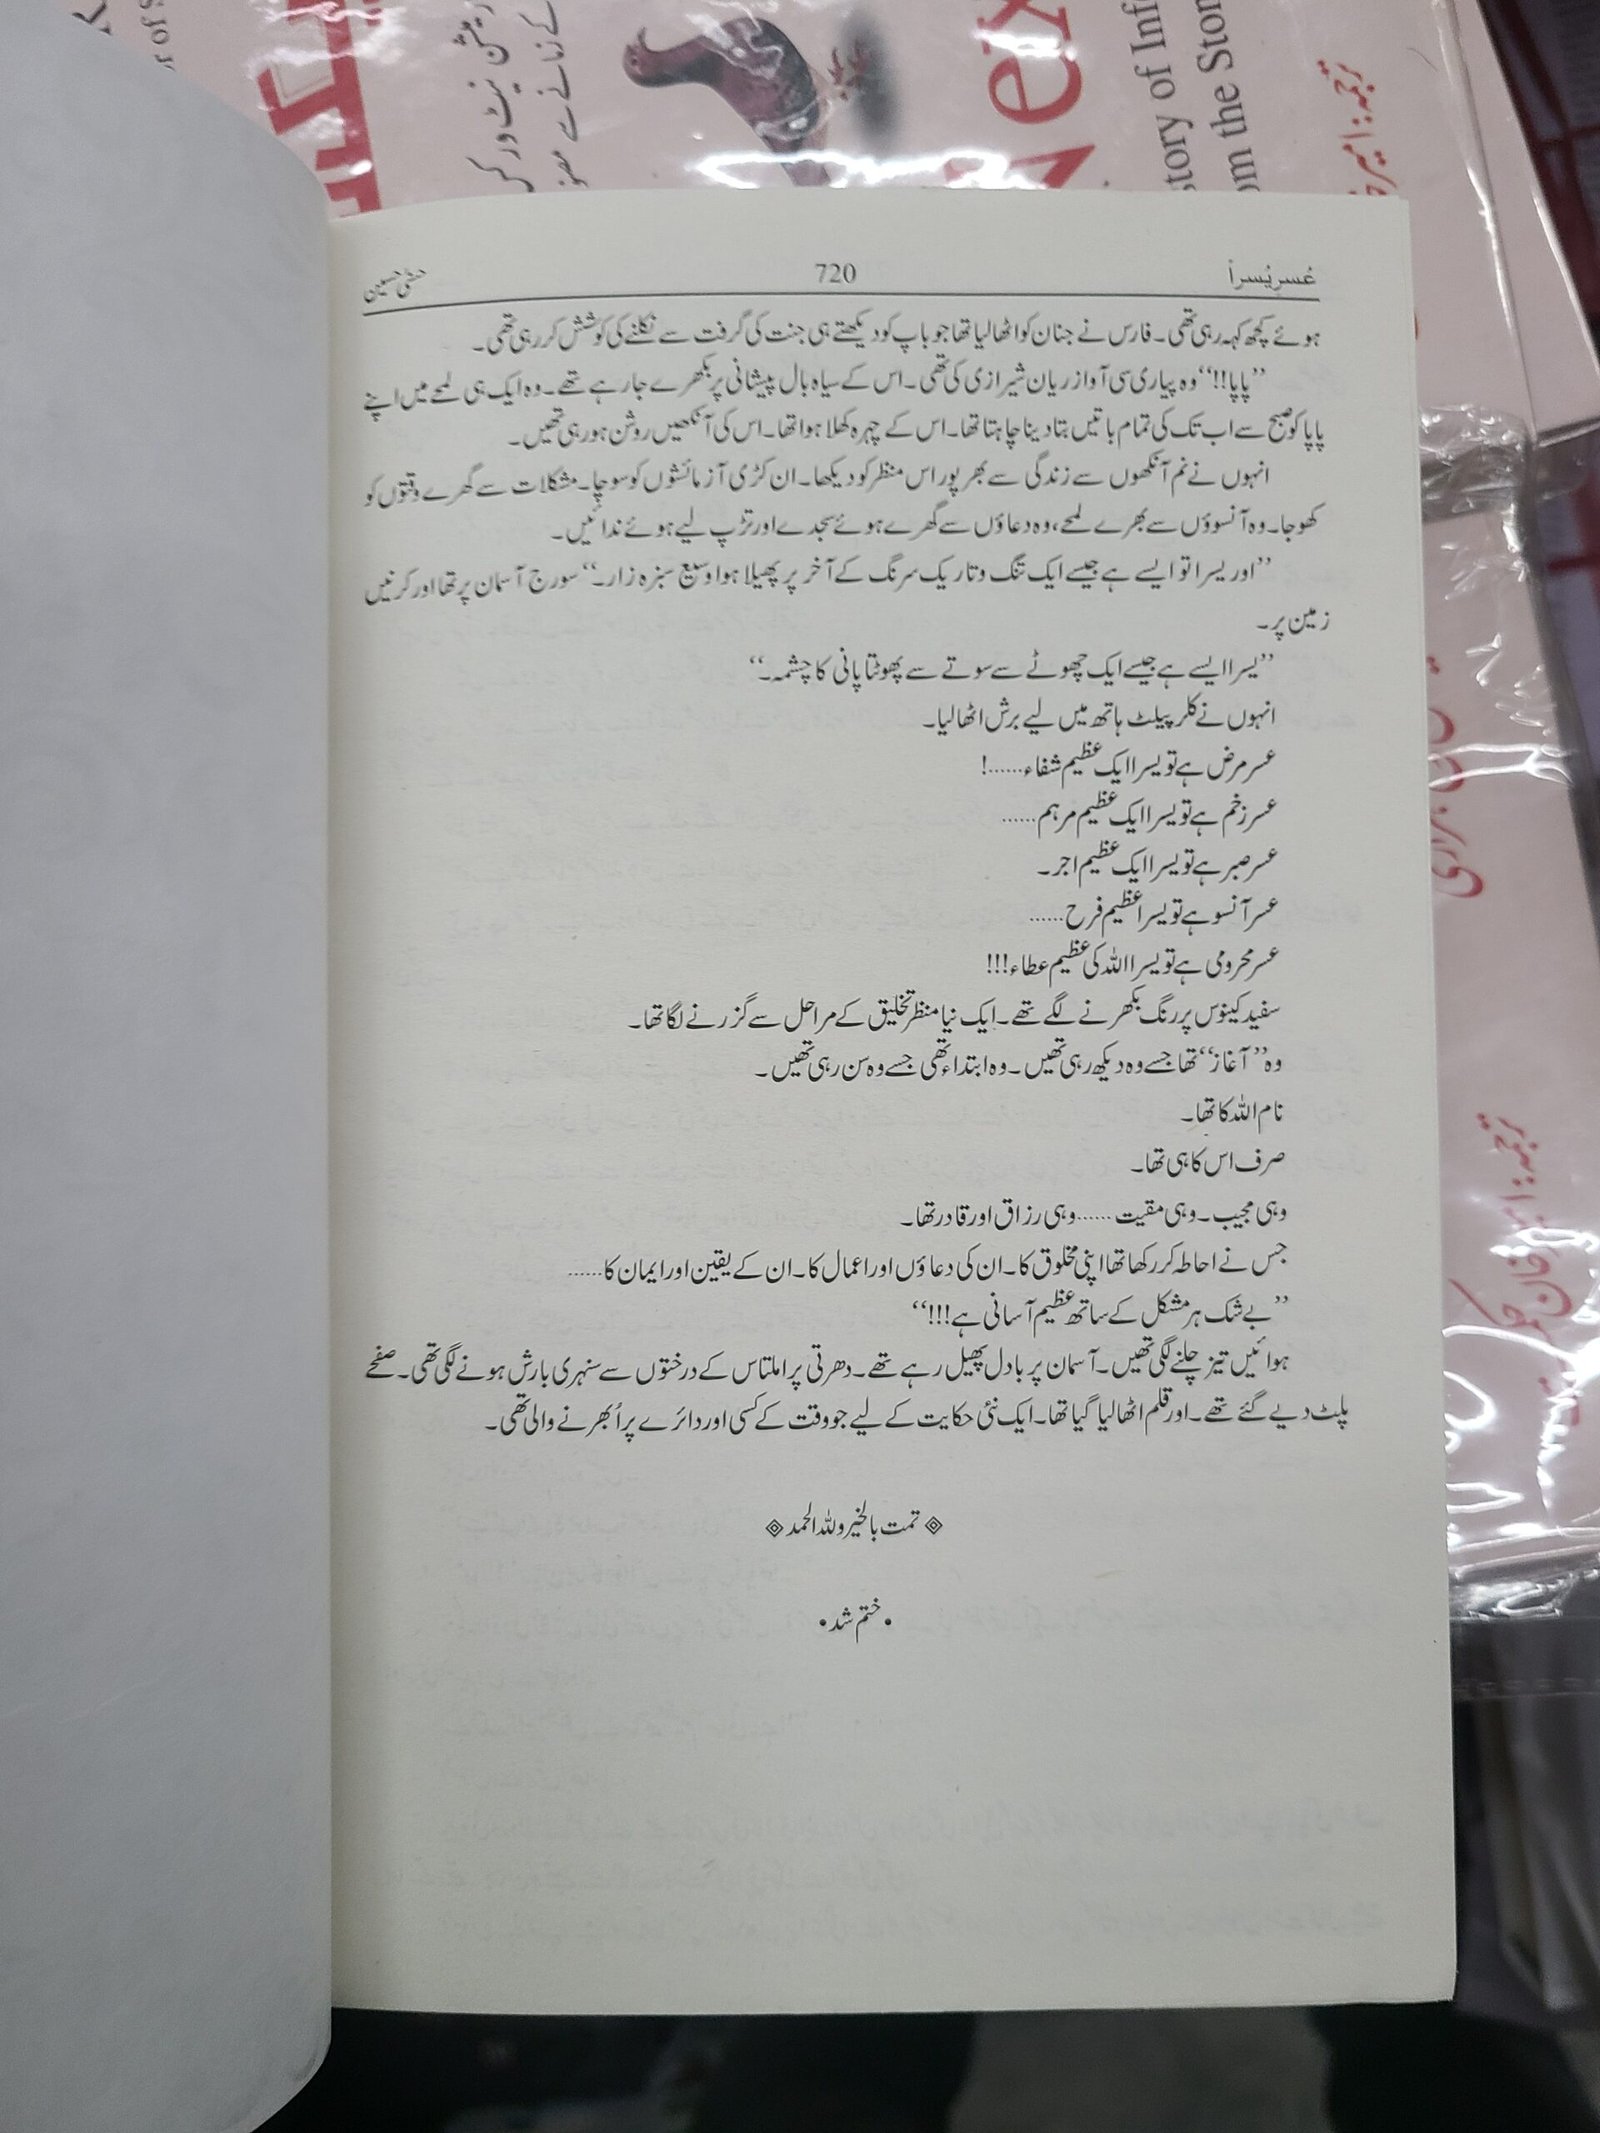 عُسرِیُسراً
720
حسنیٰ حسین
ہوئے کچھ کہہ رہی تھی۔ فارس نے جنان کو اٹھا لیا تھا جو باپ کو دیکھتے ہی جنت کی گرفت سے نکلنے کی کوشش کر رہی تھی۔
”پاپا!!“ وہ پیاری سی آواز ریان شیرازی کی تھی۔ اس کے سیاہ بال پیشانی پر بکھرے جا رہے تھے۔ وہ ایک ہی لمحے میں اپنے
پاپا کو صبح سے اب تک کی تمام باتیں بتا دینا چاہتا تھا۔ اس کے چہرہ کھلا ہوا تھا۔ اس کی آنکھیں روشن ہو رہی تھیں۔
انہوں نے نم آنکھوں سے زندگی سے بھرپور اس منظر کو دیکھا۔ ان کڑی آزمائشوں کو سوچا۔ مشکلات سے گھرے وقتوں کو
کھوجا۔ وہ آنسوؤں سے بھرے لمحے، وہ دعاؤں سے گھرے ہوئے سجدے اور تڑپ لیے ہوئے ندائیں۔
”اور یسرا تو ایسے ہے جیسے ایک تنگ و تاریک سرنگ کے آخر پر پھیلا ہوا وسیع سبزہ زار۔“ سورج آسمان پر تھا اور کرنیں
زمین پر۔
”یسرا ایسے ہے جیسے ایک چھوٹے سے سوتے سے پھوٹتا پانی کا چشمہ۔“
انہوں نے کلر پیلٹ ہاتھ میں لیے برش اٹھا لیا۔
عسر مرض ہے تو یسرا ایک عظیم شفاء......!
عسر زخم ہے تو یسرا ایک عظیم مرہم......
عسر صبر ہے تو یسرا ایک عظیم اجر۔
عسر آنسو ہے تو یسرا عظیم فرح......
عسر محرومی ہے تو یسرا اللہ کی عظیم عطاء!!!
سفید کینوس پر رنگ بکھرنے لگے تھے۔ ایک نیا منظر تخلیق کے مراحل سے گزرنے لگا تھا۔
وہ ”آغاز“ تھا جسے وہ دیکھ رہی تھیں۔ وہ ابتداء تھی جسے وہ سن رہی تھیں۔
نام اللہ کا تھا۔
صرف اس کا ہی تھا۔
وہی مجیب۔ وہی مقیت...... وہی رزاق اور قادر تھا۔
جس نے احاطہ کر رکھا تھا اپنی مخلوق کا۔ ان کی دعاؤں اور اعمال کا۔ ان کے یقین اور ایمان کا......
”بے شک ہر مشکل کے ساتھ عظیم آسانی ہے!!!“
ہوائیں تیز چلنے لگی تھیں۔ آسمان پر بادل پھیل رہے تھے۔ دھرتی پر املتاس کے درختوں سے سنہری بارش ہونے لگی تھی۔ صفحے
پلٹ دیے گئے تھے۔ اور قلم اٹھا لیا گیا تھا۔ ایک نئی حکایت کے لیے جو وقت کے کسی اور دائرے پر اُبھرنے والی تھی۔
تمت بالخیر وللہ الحمد
• ختم شد •
Nex
story of Inf
om the Ston